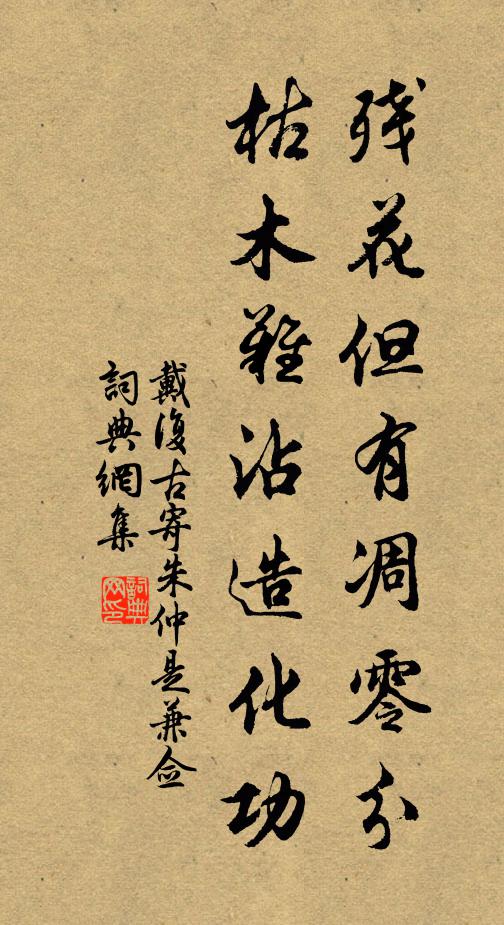 残花但有凋零分
枯木難沾造化功
戴復古寄朱仲是兼僉
詞典網集
詞典網印